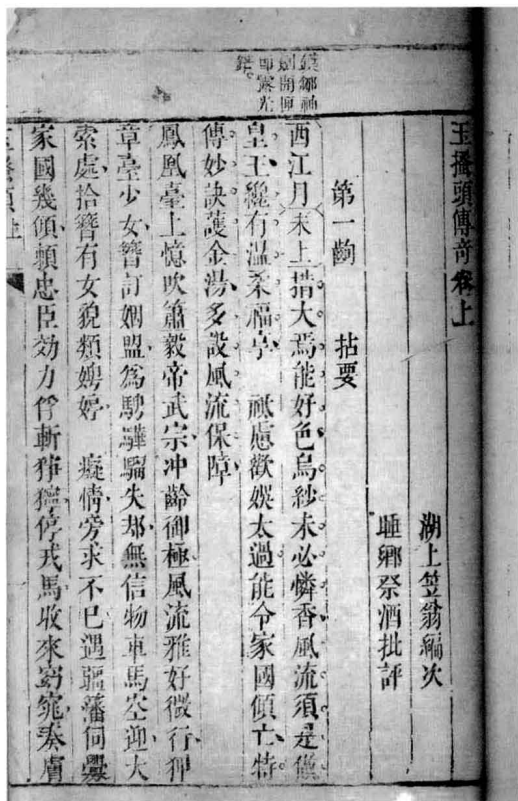 玉搔頭傳奇卷上
湖上笠翁編次
睡鄉祭酒批評
第一齣 拈要
西江月末上措大焉能好色烏紗未必憐香風流須是做
皇王纔有溫柔福享 祇慮歡娛太過能令家國傾亡特
傳妙訣護金湯多設風流保障
鳳凰臺上憶吹簫毅帝武宗冲齡御極風流雅好微行狎
章臺少女簪訂姻盟爲騁驊騮失却無信物車馬空迎大
索處拾簪有女貌類娉婷 癡情旁求不已遇疆藩伺釁
家國幾傾頼忠臣効力俘斬猙獰停戎馬收來窈窕奏膚
鏌鋣神
劍開匣
即露光